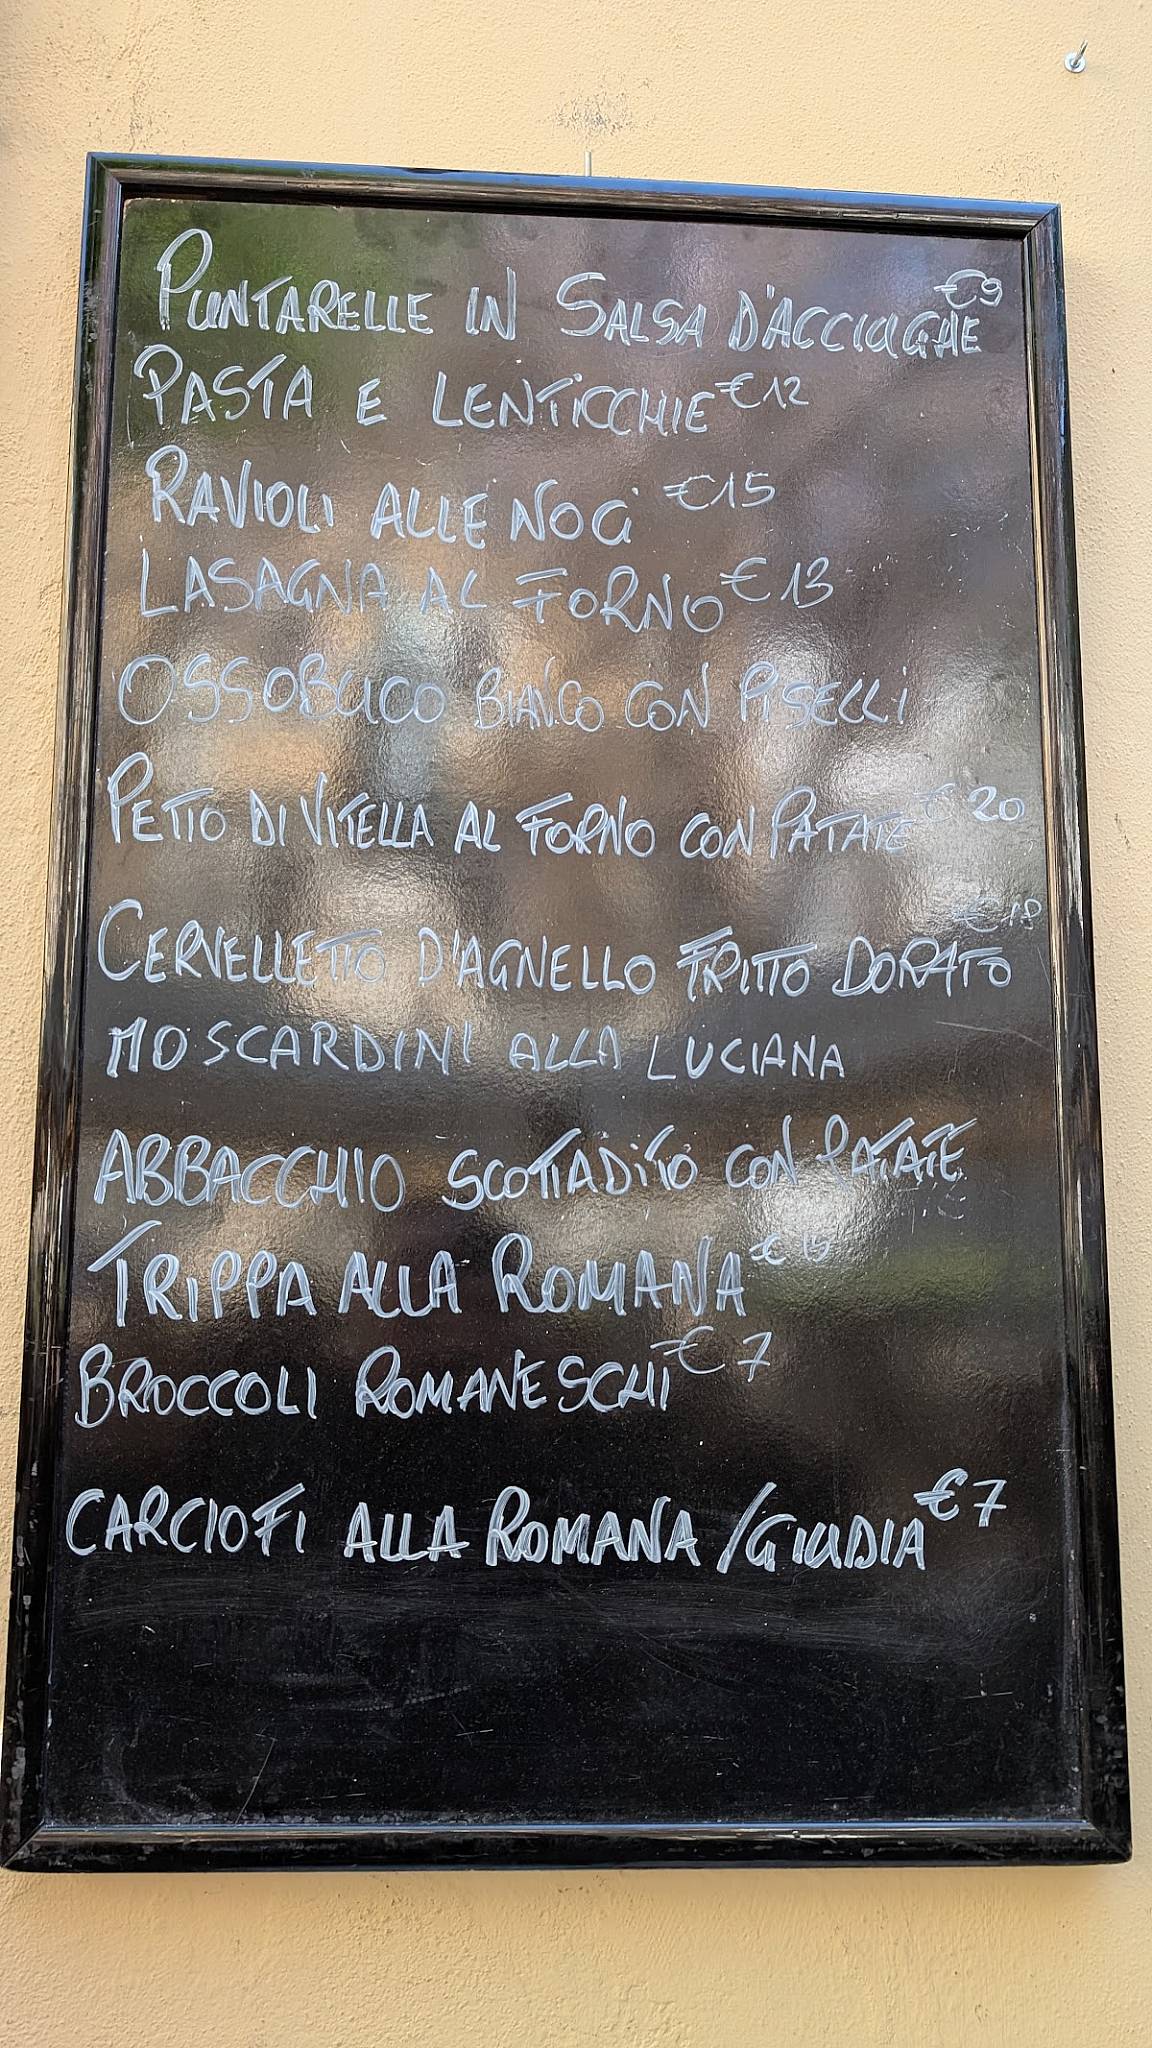 PUNTARELLE IN SALSA D'ACCIUGHE €9
PASTA E LENTICCHIE €12
RAVIOLI ALLE NOCI €15
LASAGNA AL FORNO €13
OSSOBUCO BIANCO CON PISELLI
PETTO DI VITELLA AL FORNO CON PATATE €20
CERVELLETTO D'AGNELLO FRITTO DORATO €18
MOSCARDINI ALLA LUCIANA
ABBACCHIO SCOTTADITO CON PATATE
TRIPPA ALLA ROMANA €
BROCCOLI ROMANESCHI €7
CARCIOFI ALLA ROMANA/GIUDIA €7